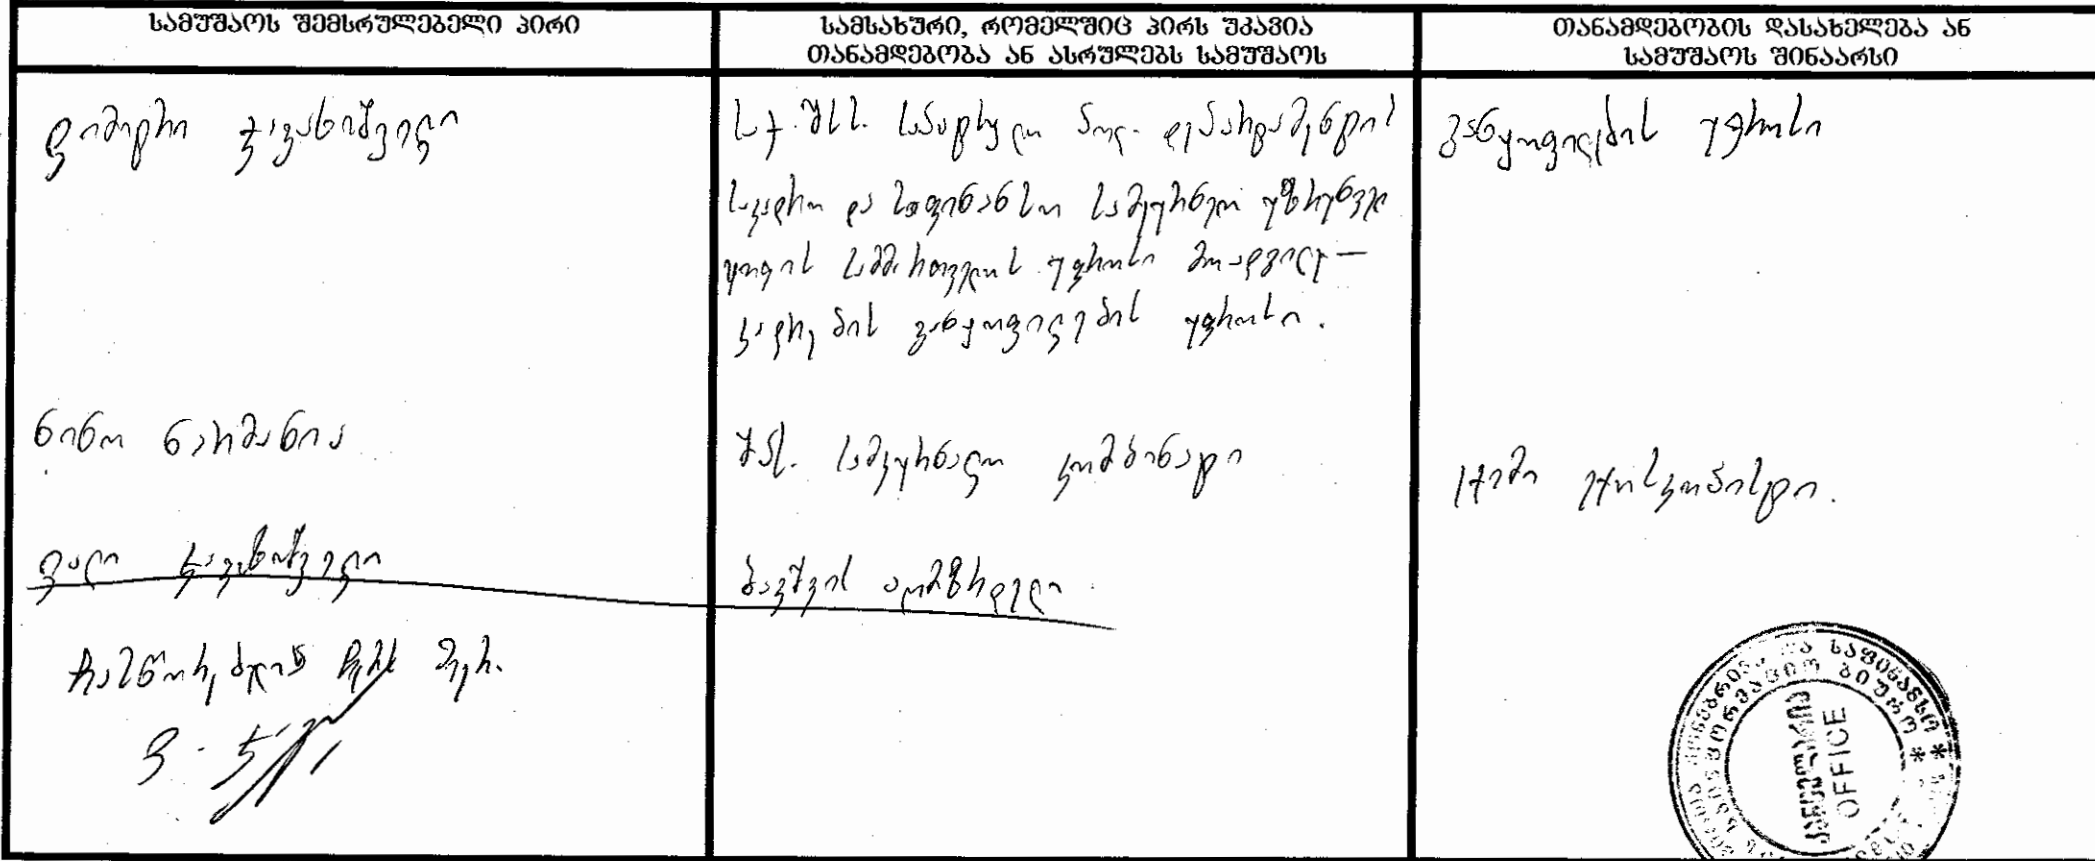 სამუშაოს შემსრულებელი პირი
სამსახური, რომელშიც პირს უკავია
თანამდებობა ან ასრულებს სამუშაოს
თანამდებობის დასახელება ან
სამუშაოს შინაარსი
დიმიტრი ჯავახიშვილი
ს.ქ. შსს. საპატრულო პოლ. დეპარტამენტის
საკადრო და საფინანსო სამეურნეო უზრუნველ
ყოფის სამმართველოს უფროსი მოადგილე —
კადრების განყოფილების უფროსი.
განყოფილების უფროსი
ნინო ნარმანია
შპს. სამკურნალო კომბინატი
ექიმი
ვალი ჯავახიშვილი
ბავშვის აღმზრდელი
ჩასწორებულია ჩემს მერ.
საფინანსო
ბიურო
OFFICE